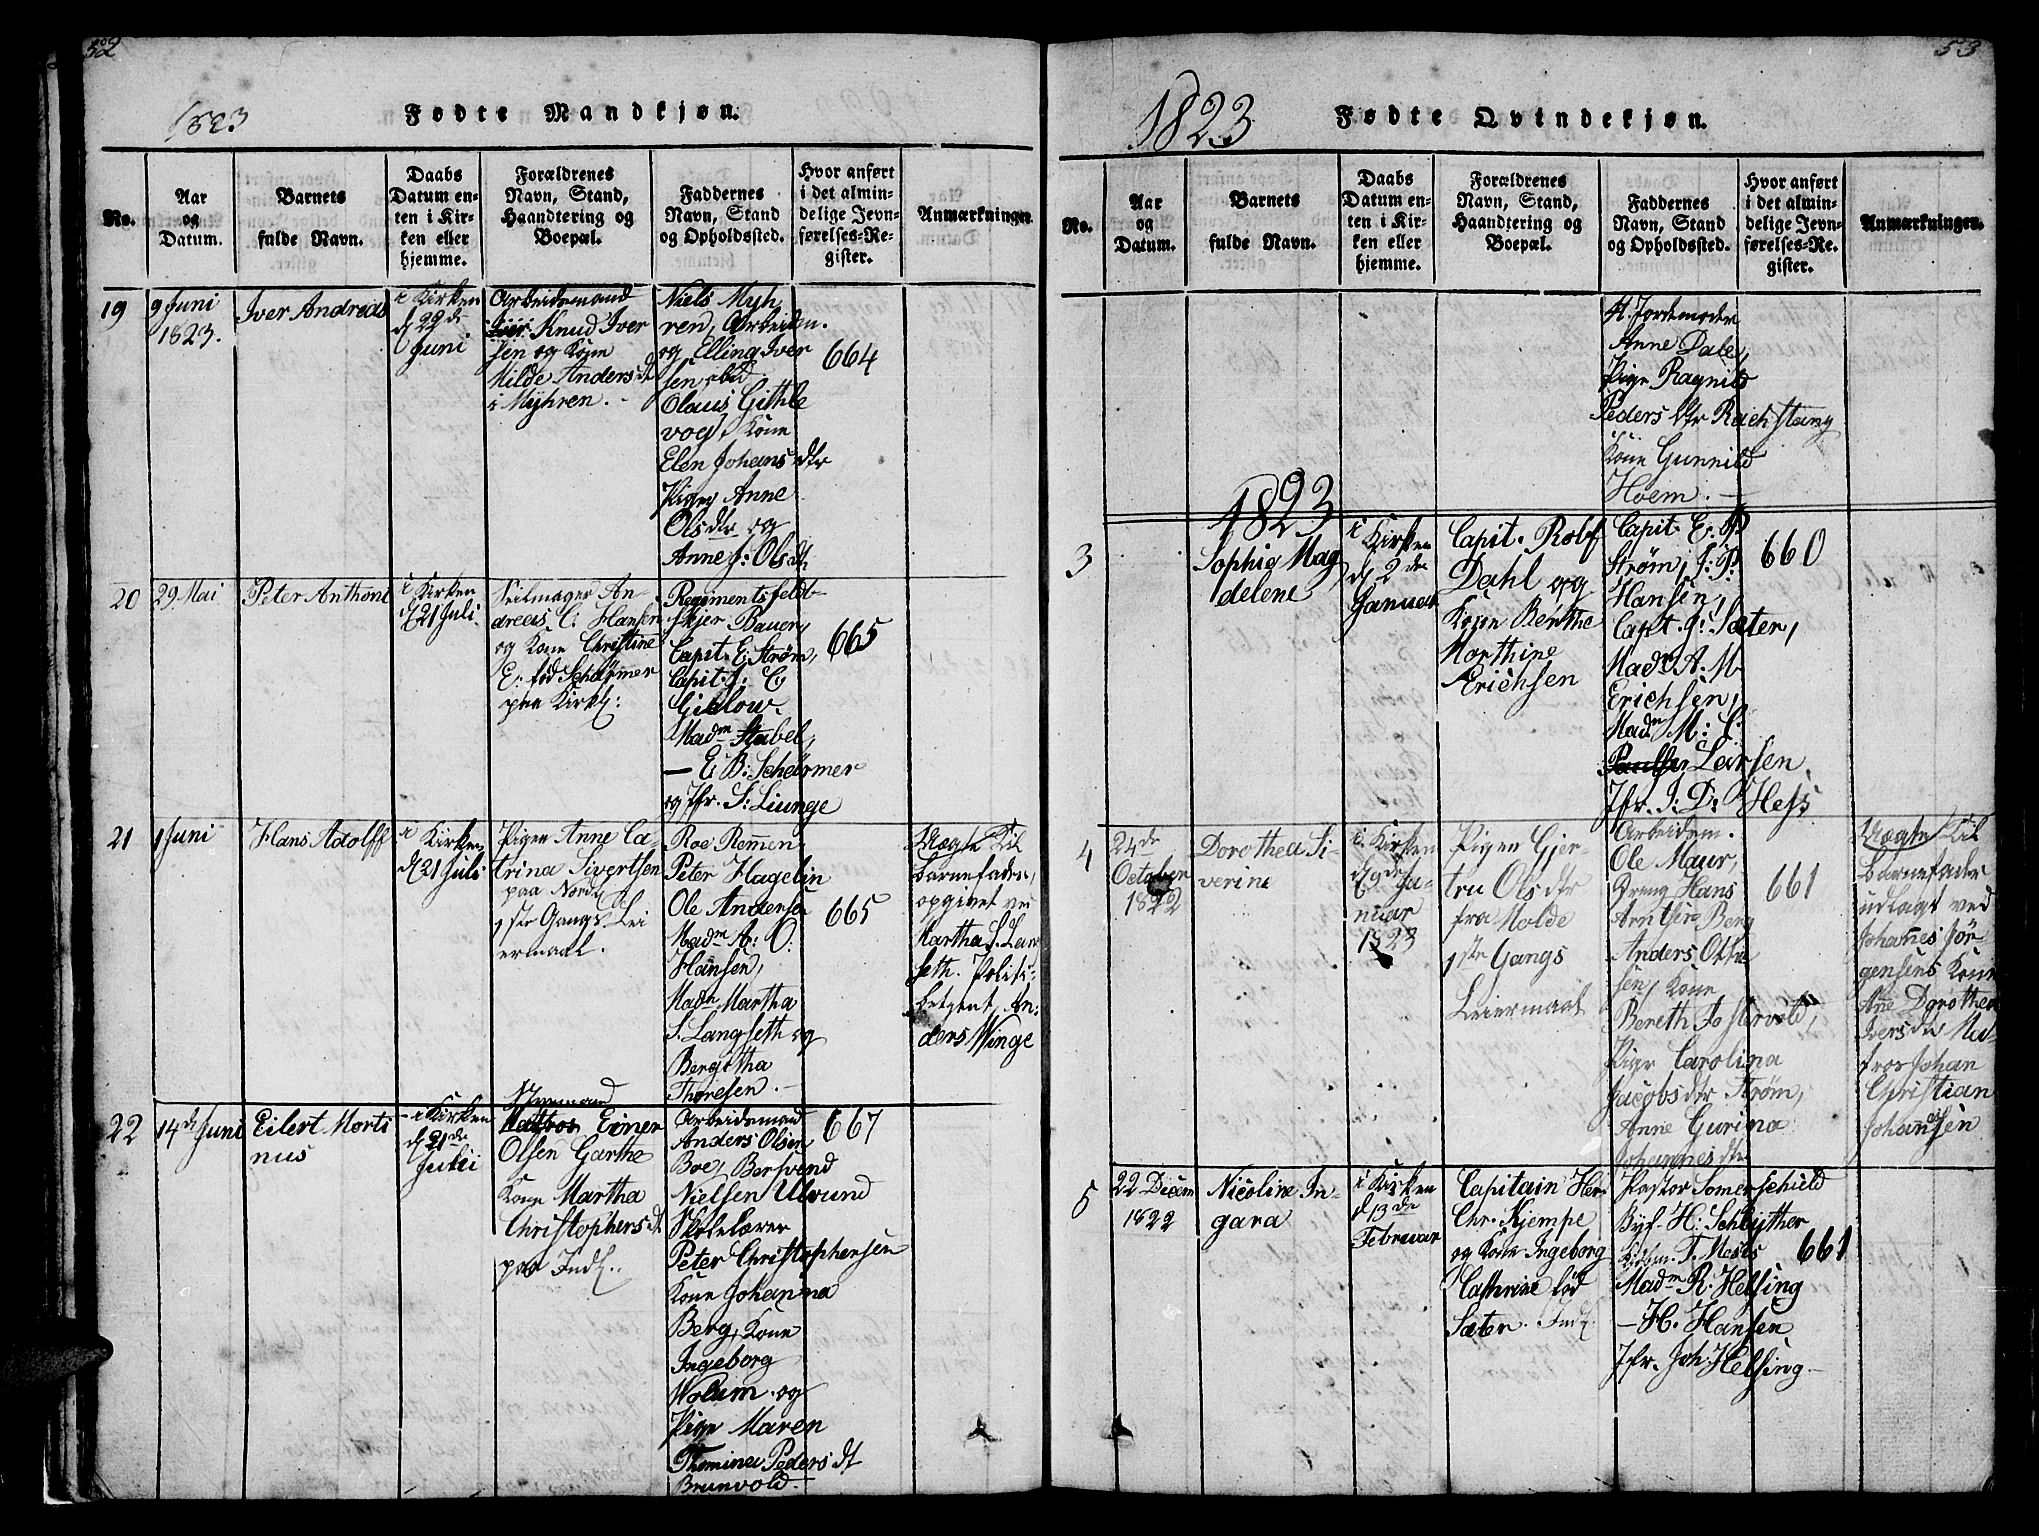 52
1823
Fødte Mandkjøn.
No.
Aar
og
Datum.
Barnets
fulde Navn.
Daabs
Datum en-
ten i Kir-
ken eller
hjemme.
Forældrenes
Navn, Stand,
Haandtering og
Boepæl.
Faddernes
Navn, Stand
og Opholdssted.
Hvor anført
i det almin-
delige Jevn-
førelses-Re-
gister.
Anmærkninger.
19
9 Juni
1823.
Iver Andreas
i Kirken
d 22de
Juni
Arbeidsmand
Iver Knud Iver
sen og Kone
Milde Anders dt
i Myhren.
Niels Myh
ren, Arbeidm.
og Elling Iver
sen ibd
Olaus Githle
vog, Kone
Elen Johans dtr
Piger Anne
Olsdtr og
Anne J: Olsdt.
664
20
29 Mai
Peter Anthoni
i Kirken
d 21 Juli
Seilmager An
dreas C: Hansen
og Kone Christine
E: fød Schørmer
paa Kirkl:
Regimentsfeldt-
skjer Bauer,
Capit. E. Strøm,
Capit. J: E
Gielow.
Madm Stabel,
— E. B: Schørmer
og Jfr. S: Liunge
665
21
1 Juni
Hans Adolff
i Kirken
d 21 Juli
Pigen Anne Ca-
trina Sivertsen
paa Nordl:
1ste Gangs Lei
ermaal.
Roe Remen
Peter Hagelin
Ole Andersen
Madm A: O:
Hansen,
Madm Martha
S. Langseth og
Bergitha
Thoresen.
665
Uægte til
barnefader,
opgivet ved
Martha S. Lang
seth. Politi-
betjent An-
ders Winge
22
14de Juni
Eilert Morti
nus
i Kirken
d 21de
Julii
Styrmand
Matros Einer
Olsen Garthe
Kone Martha
Christophers dt
paa Indl.
Arbeidsmand
Anders Olsen
Boe, Bersvend
Nielsen Ulvund
Skolelærer
Peter Christophersen
Kone Johanna
Berg, Kone
Ingeborg
Wolum og
Pige Maren
Thomina Peders dt
Brunvold.
667
53
1823
Fødte Qvindekjøn.
No.
Aar
og
Datum.
Barnets
fulde Navn.
Daabs
Datum en-
ten i Kir-
ken eller
hjemme.
Forældrenes
Navn, Stand,
Haandtering og
Boepæl.
Faddernes
Navn, Stand
og Opholdssted.
Hvor anført
i det almin-
delige Jevn-
førelses-Re-
gister.
Anmærkninger.
Jordemoder
Anne Dale,
Pige Ragnild
Peders dtr Rachstang
Kone Gunnild
Hoem.
1823
3
Sophia Mag
delene
i Kirken
d 2den
Januar
Capit. Rolf
Dahl og
Kone Benthe
Morthine
Erichsen
Capit. E. P
Strøm, J: P:
Hansen,
Capt. J. Sæter,
Madm A. M.
Erichsen,
Madm M: C:
Larsen,
Jfr. J: D: Hess
660
4
24de
October
1822
Dorothea Si-
verine
i Kirken
d 9de Ja-
nuar
1823
Pigen Gjer-
tru Olsdtr
fra Molde
1ste Gangs
Leiermaal
Arbeidsm.
Ole Maur,
Dreng Hans
Arntsen Berg
Anders Otte
sen, Kone
Bereth Fostervold,
Pige Carolina
Jacobsdtr Strøm,
Anne Gurina
Johannesdtr
661
Uægte til
barnefader
udlagt ved
Johannes Jør-
gensens Kone
Ane Dorothea
Iversdtr Ma-
tros Johan
Christian
Johansen
5
22 Decem
1822
Nicoline In-
gara
i Kirken
d 13de
Februar
Capitain Her
Chr. Kjempe
og Kone Ingeborg
Cathrine fød
Sæter. Indl.
Pastor Somerschield
Byf. H: Schlyther
Kjøbm. T. Moses
Madm R. Helsing
— H. Hansen
Jfr. Joh: Helsing
661